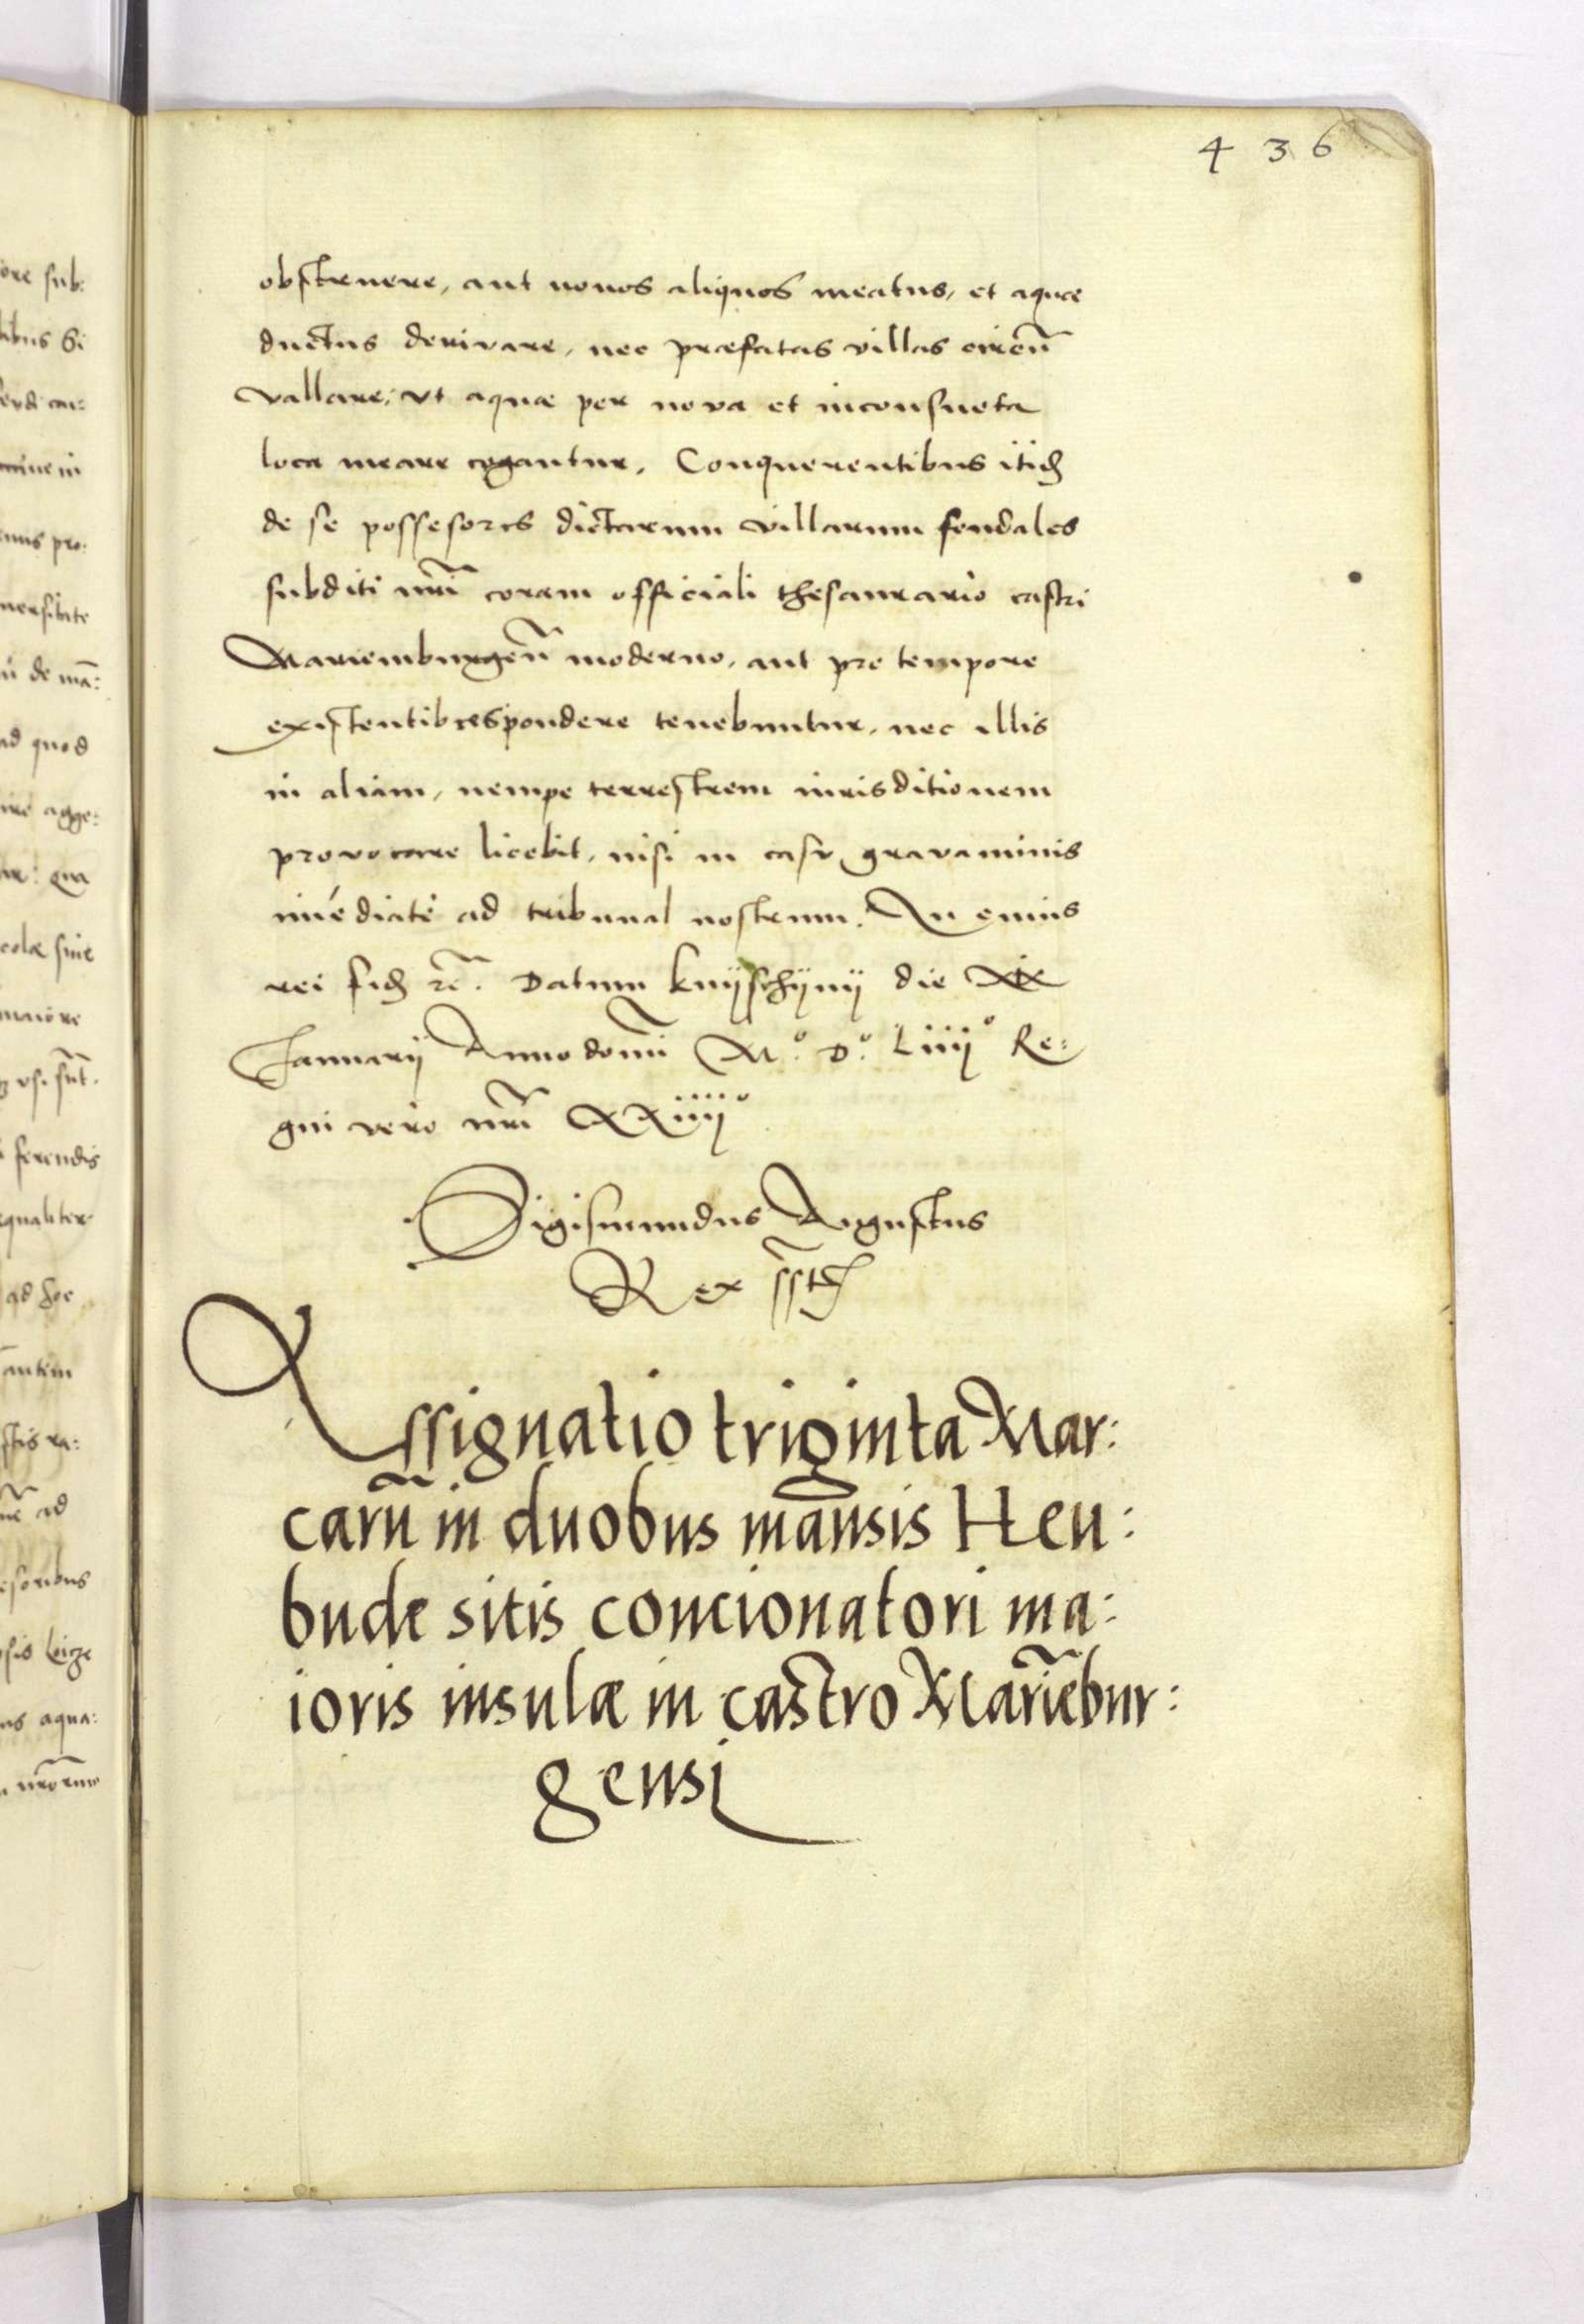 436
obstruere, aut novos aliquos meatus, et aquae
ductus derivare, nec praefatas villas circũ
vallare, vt aquae per nova et inconsueta
loca meare cogantur. Conquerentibus itidẽ
de se possesores dictarum villarum feudales
subditi nr̃i coram officiali thesaurario castri
Mariemburgeñ moderno, aut pro tempore
existentib respondere tenebuntur, nec illis
in aliam, nempe terrestrem iurisditionem
provocare licebit, nisi in casu gravaminis
im̃ediatè ad tribunal nostrum. In cuius
rei fidẽ rc̃. Datum knijschijnij die xix
Januarij Anno domĩ M.º D.º Liiijº Re:
gni vero nr̃i XXiiijº
Sigismundus Augustus
Rex sst
Assignatio triginta Mar:
carũ in duobus mansis Heu:
bude sitis concionatori ma:
ioris insulæ in castro Mariẽbur:
gensi
ore sub:
libus Si
nus pro:
versitate
ũ de mã:
ad quod
ire agge:
colæ sive
vsi sũt.
ferendis
equaliter
ad hoc
antim
stis ra:
ad
esoribus
ns aqua:
nr̃orum